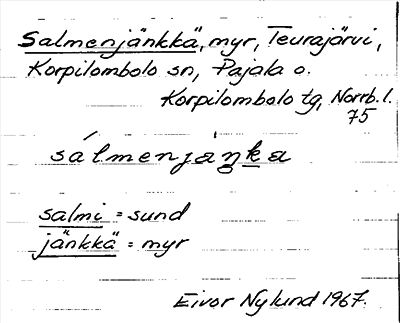 Salmenjänkkä, myr, Teurajärvi,
Korpilombolo sn, Pajala o.
Korpilombolo tg, Norrb. l.
75
sálmenjaŋka
salmi = sund
jänkkä = myr
Eivor Nylund 1967.